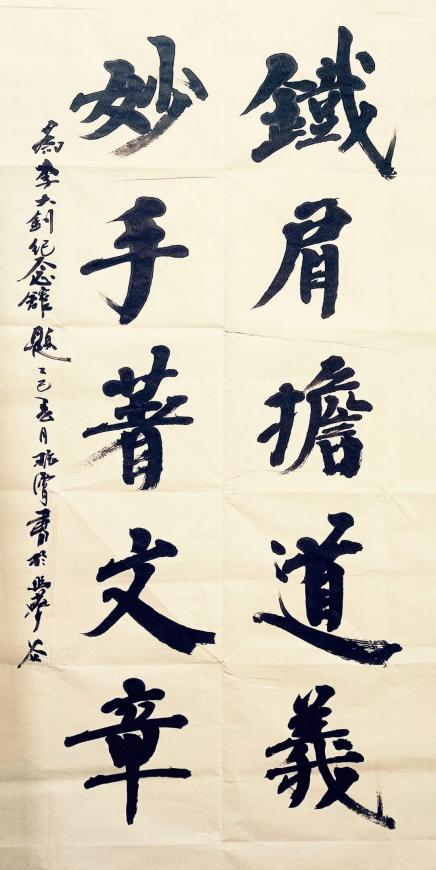 鐵肩擔道義
妙手著文章
為李大釗紀念館題乙巳春月書於谷